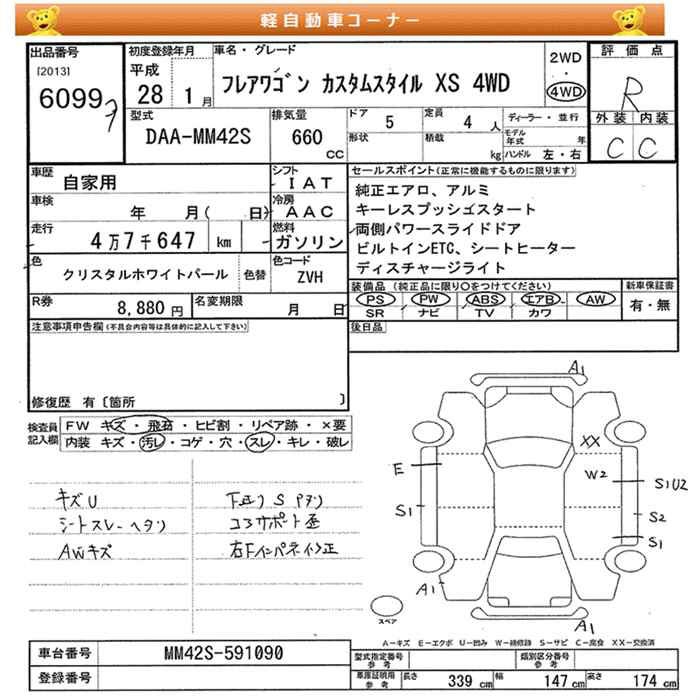 軽自動車コーナー
出品番号
[2013]
6099
初度登録年月
平成
28 1月
車名・グレード
フレアワゴン カスタムスタイル XS 4WD
2WD
・
4WD
評価点
R
外装 内装
C C
型式
DAA-MM42S
排気量
660
CC
ドア
5
定員
4 人
形状
積載
kg
ディーラー・並行
モデル年式 年
ハンドル 左・右
車歴
自家用
シフト
IAT
車検
年 月( 日)
冷房
AAC
走行
4万7千647 km
燃料
ガソリン
色
クリスタルホワイトパール
色替
色コード
ZVH
R券
8,880 円
名変期限
月 日
セールスポイント(正常に機能するものに限ります)
純正エアロ、アルミ
キーレスプッシュスタート
両側パワースライドドア
ビルトインETC、シートヒーター
ディスチャージライト
装備品 (純正品に限り○をつけてください)
PS PW ABS エアB AW
SR ナビ TV カワ
新車保証書
有・無
後日品
注意事項申告欄(不具合内容等は具体的に記入して下さい)
修復歴 有〔箇所 〕
検査員記入欄
FW キズ・飛石・ヒビ割・リペア跡・×要
内装 キズ・汚レ・コゲ・穴・スレ・キレ・破レ
キズU
シートスレ ヘタリ
AWキズ
下回りS
コアサポート歪
右Fインパネ
A1
XX
E
W2
S1U2
S1
S2
S1
A1
A1
スペア
A-キズ E-エクボ U-凹み W-補修跡 S-サビ C-腐食 XX-交換済
車台番号
MM42S-591090
登録番号
型式指定番号
参考
類別区分番号
参考
車庫証明用
参考
長さ 339 cm 幅 147 cm 高さ 174 cm